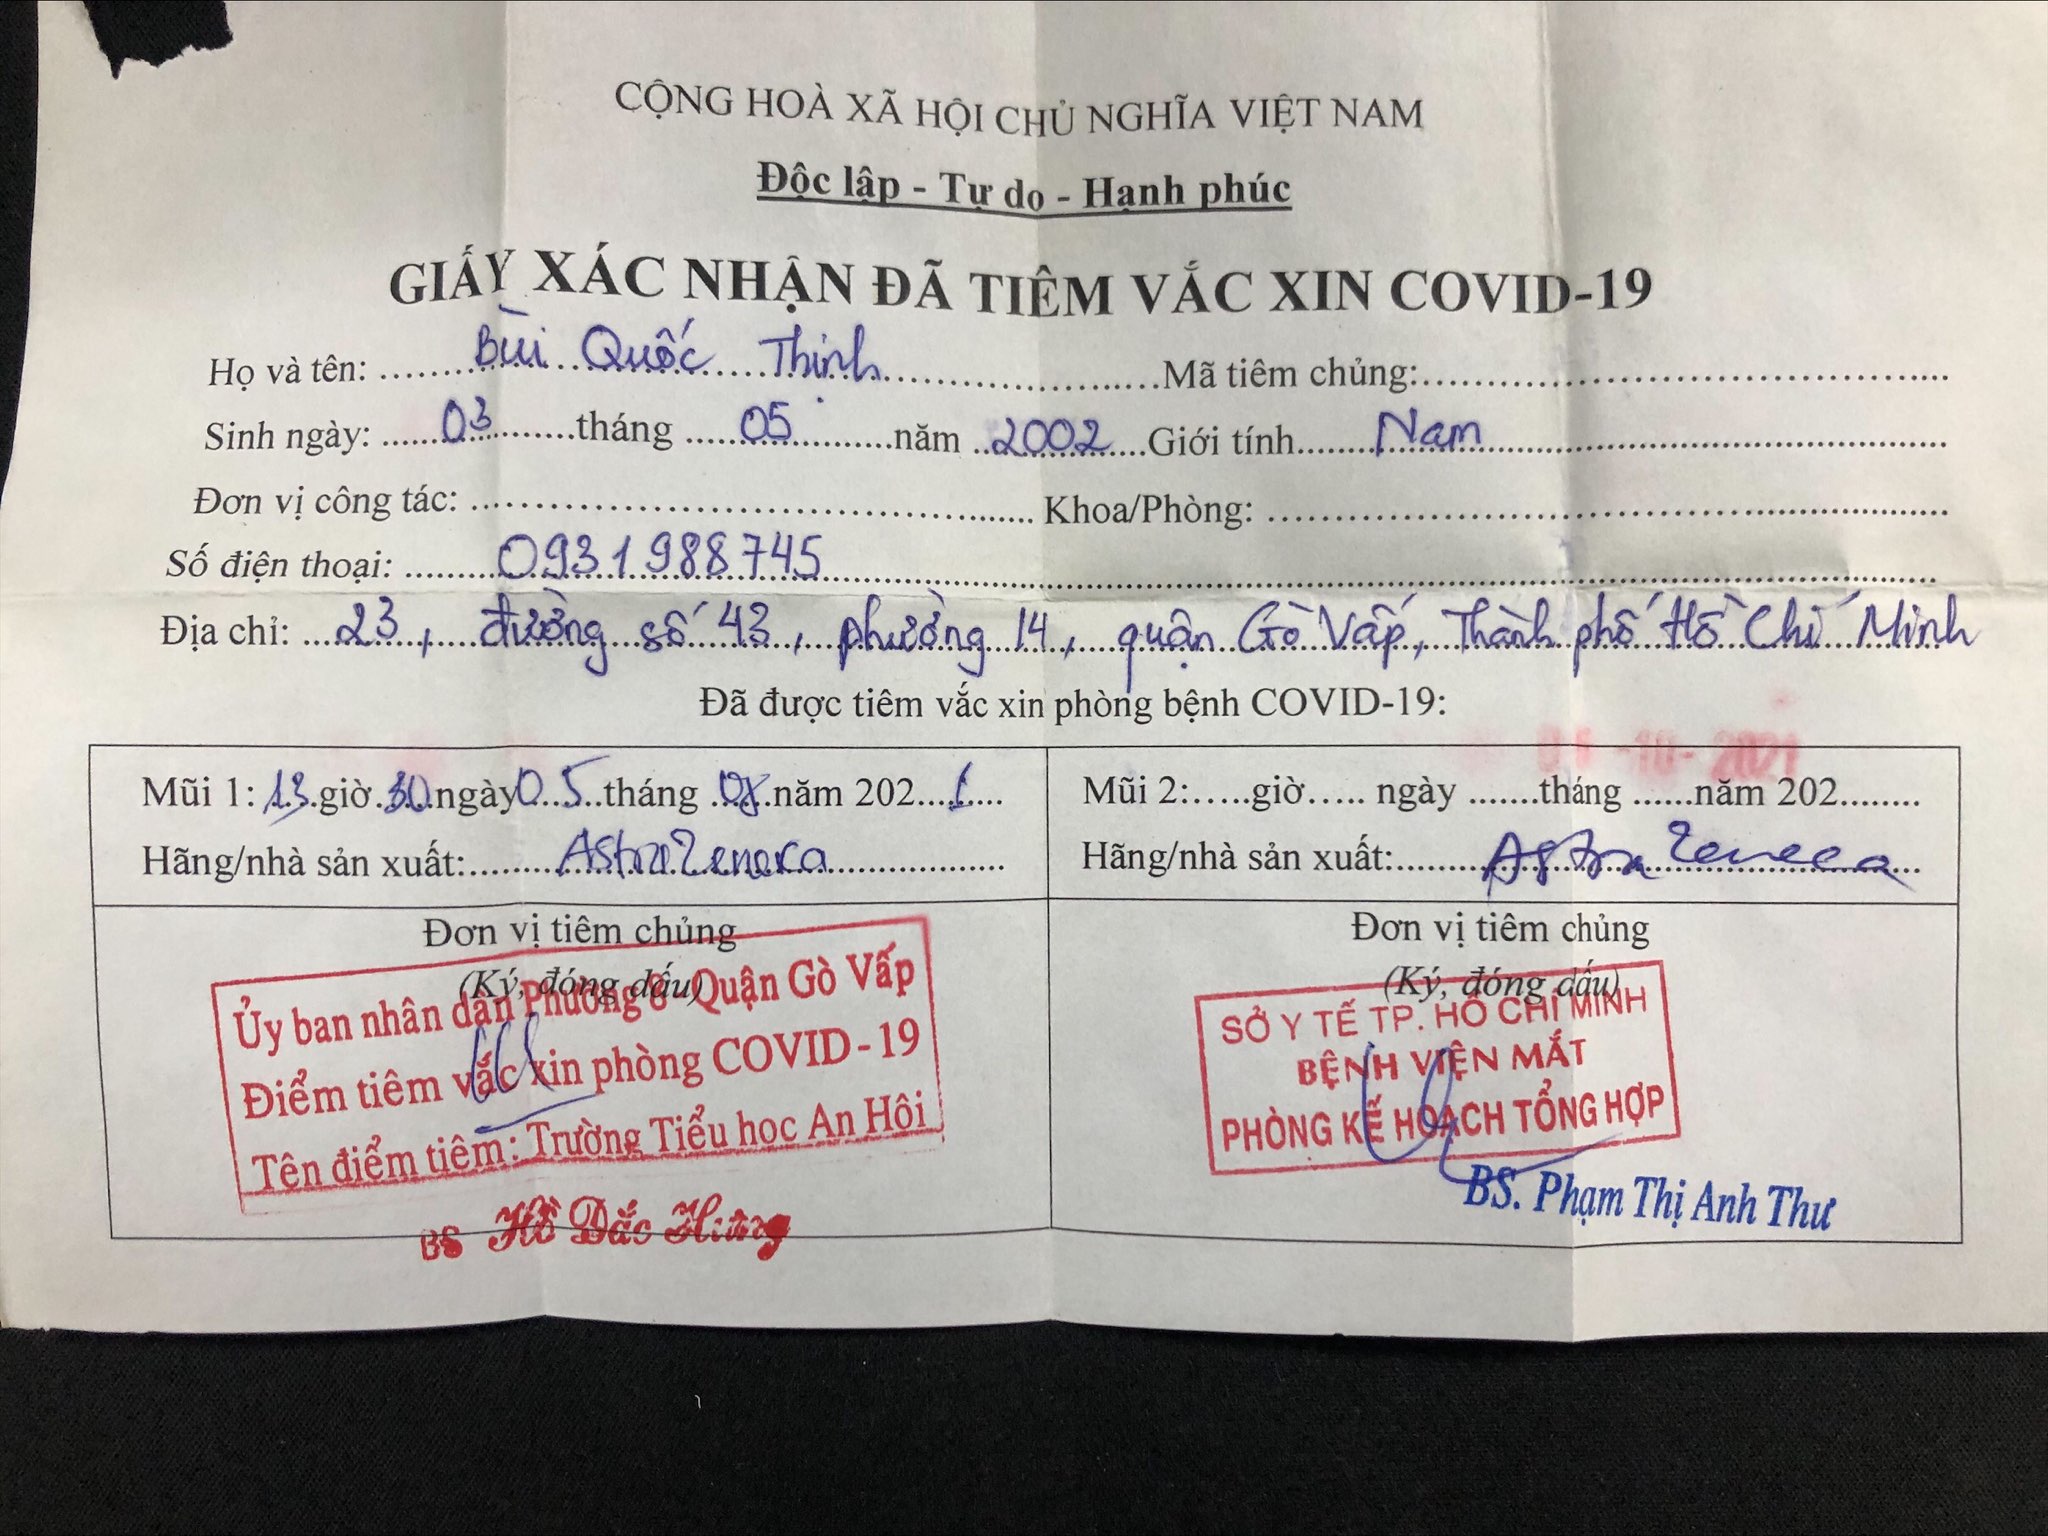 CỘNG HOÀ XÃ HỘI CHỦ NGHĨA VIỆT NAM
Độc lập - Tự do - Hạnh phúc
GIẤY XÁC NHẬN ĐÃ TIÊM VẮC XIN COVID-19
Họ và tên: Bùi Quốc Thịnh Mã tiêm chủng:
Sinh ngày: 03 tháng 05 năm 2002 Giới tính Nam
Đơn vị công tác: Khoa/Phòng:
Số điện thoại: 0931988745
Địa chỉ: 23, đường số 43, phường 14, quận Gò Vấp, Thành phố Hồ Chí Minh
Đã được tiêm vắc xin phòng bệnh COVID-19:
Mũi 1: 13 giờ 30 ngày 05 tháng 08 năm 2021
Hãng/nhà sản xuất: AstraZeneca
-10-2021
Mũi 2: giờ ngày tháng năm 202
Hãng/nhà sản xuất: AstraZeneca
Đơn vị tiêm chủng
(Ký, đóng dấu)
Ủy ban nhân dân Phường Quận Gò Vấp
Điểm tiêm vắc xin phòng COVID-19
Tên điểm tiêm: Trường Tiểu học An Hội
BS Hồ Đắc
Đơn vị tiêm chủng
(Ký, đóng dấu)
SỞ Y TẾ TP. HỒ CHÍ MINH
BỆNH VIỆN MẮT
PHÒNG KẾ HOẠCH TỔNG HỢP
BS. Phạm Thị Anh Thư